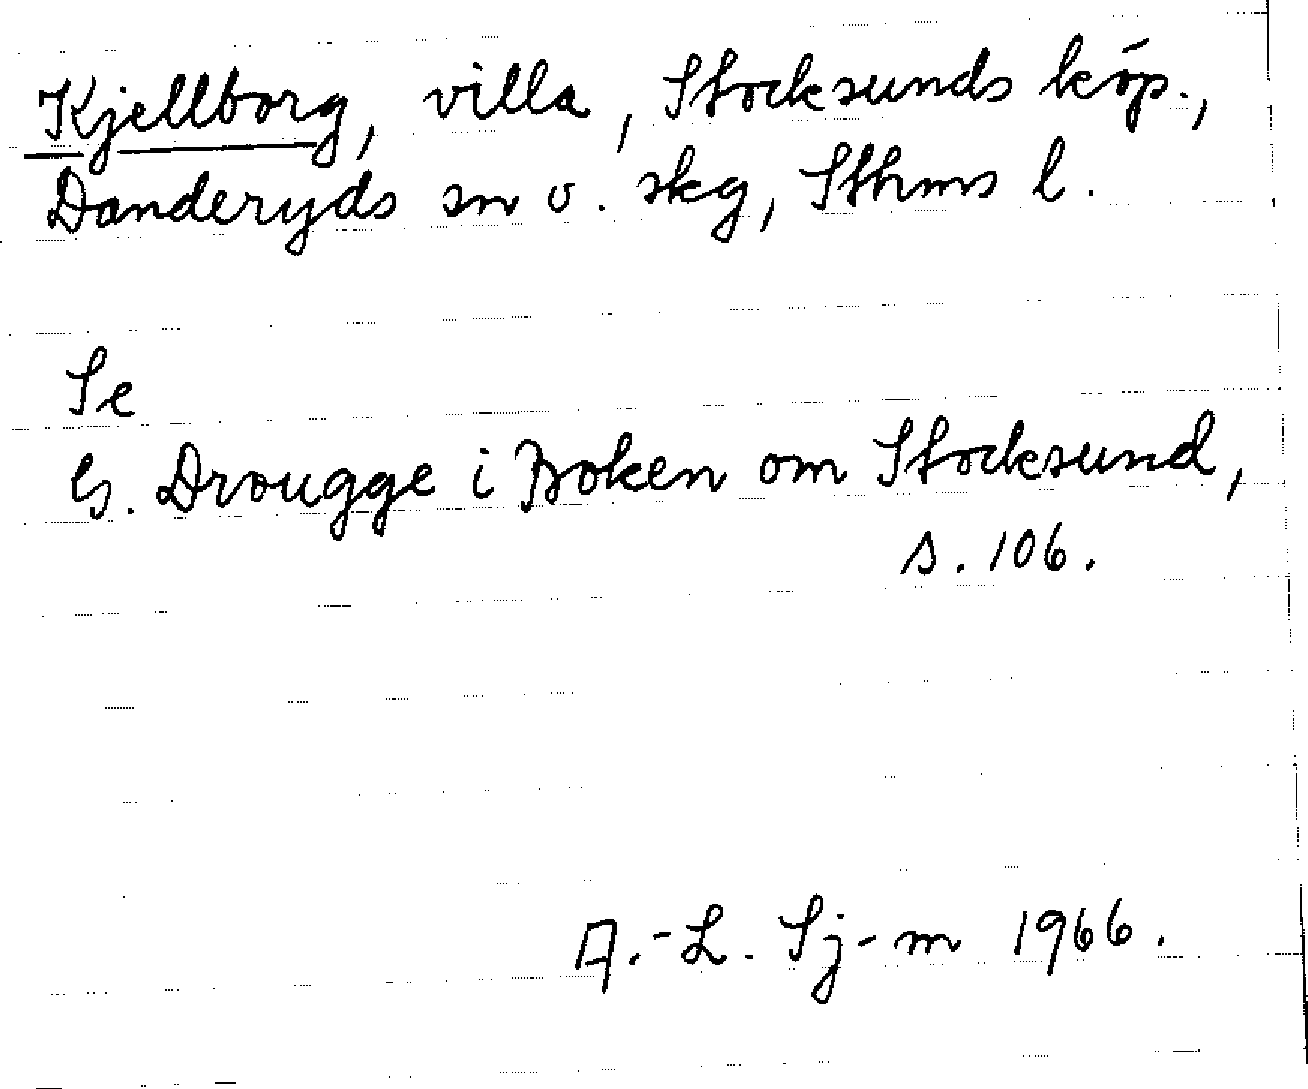 Kjellborg, villa, Stocksunds köp.,
Danderyds sn o. skg, Sthms l.
Se
G. Drougge i Boken om Stocksund,
s. 106.
A.-L. Sj-m 1966.